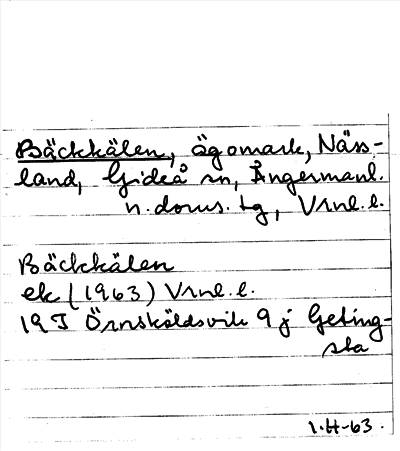 Bäckkälen, ägomark, Näss-
land, Gideå sn, Ångermanl.
n. doms. tg, Vrnl. l.
Bäckkälen
ek (1963) Vrnl. l.
19I Örnsköldsvik 9 j Geting-
sta
1.H-63.